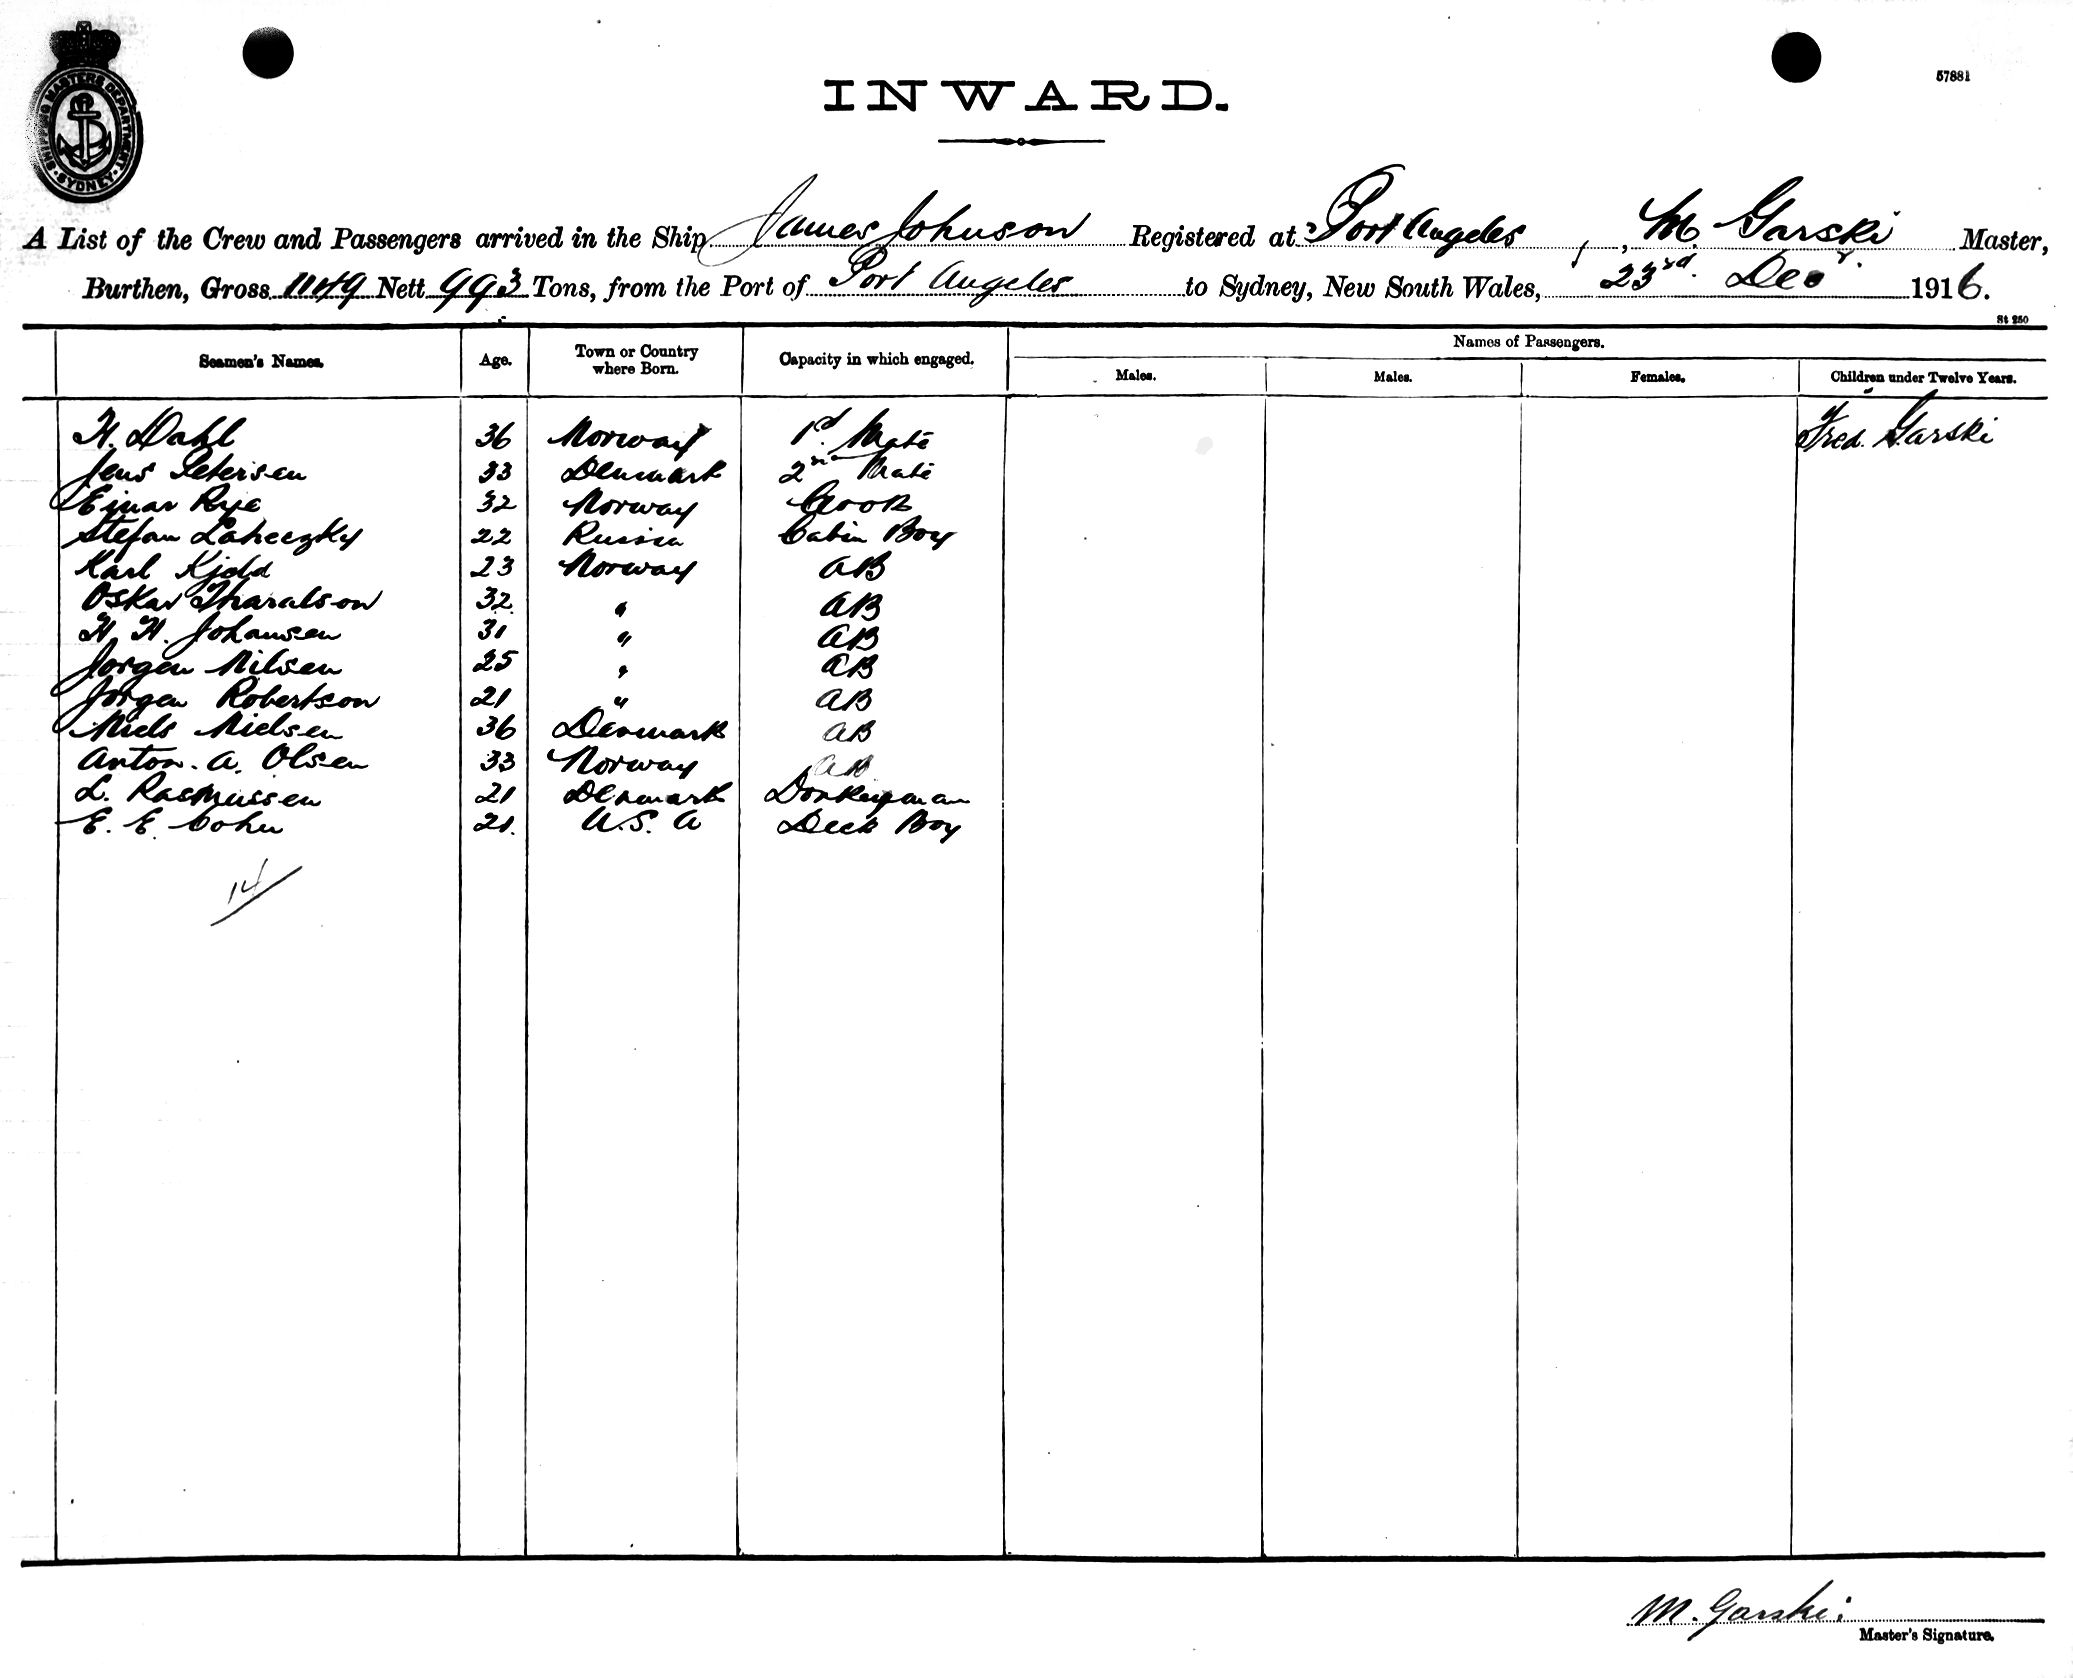 SHIPPING MASTERS DEPARTMENT
SYDNEY
57881
INWARD.
A List of the Crew and Passengers arrived in the Ship James Johnson Registered at Port Angeles, M. Garski Master,
Burthen, Gross 1149 Nett 993 Tons, from the Port of Port Angeles to Sydney, New South Wales, 23rd. Decr. 1916.
St 250
Seamen's Names. Age. Town or Country where Born. Capacity in which engaged. Names of Passengers.
Males. Males. Females. Children under Twelve Years.
H. Dahl 36 Norway 1st Mate Fred. Garski
Jens Petersen 33 Denmark 2nd Mate
Einar Rye 32 Norway Cook
Stefan 22 Russia Cabin Boy
Karl 23 Norway AB
Oskar Tharalson 32 " AB
H. H. Johansen 31 " AB
Jorgen Nilsen 25 " AB
Jorgen Robertson 21 " AB
Niels Nielsen 36 Denmark AB
Anton. A. Olsen 33 Norway AB
L. Rasmussen 21 Denmark Donkeyman
E. E. Cohn 21. U.S. A Deck Boy
14
M. Garski
Master's Signature.